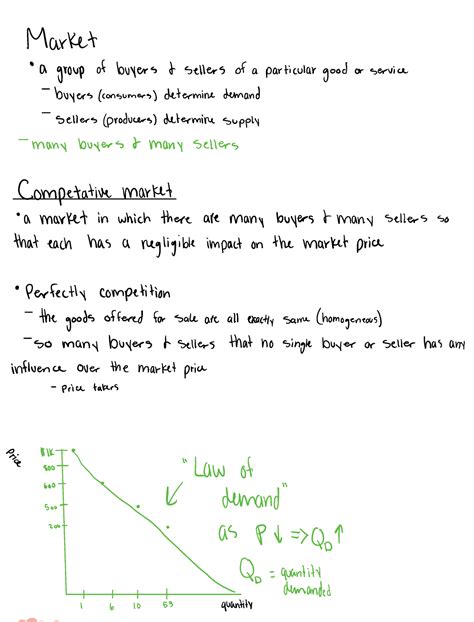 Market
• a group of buyers & sellers of a particular good or service
– buyers (consumers) determine demand
– sellers (producers) determine supply
– many buyers & many sellers
Competative market
• a market in which there are many buyers & many sellers so
that each has a negligible impact on the market price
• Perfectly competition
– the goods offered for sale are all exactly same (homogeneous)
– so many buyers & sellers that no single buyer or seller has any
influence over the market price
– price takers
Price
$1K
800
600
500
200
1 6 10 53
quantity
"Law of
demand"
as P ↓ => QD ↑
QD = quantity
demanded